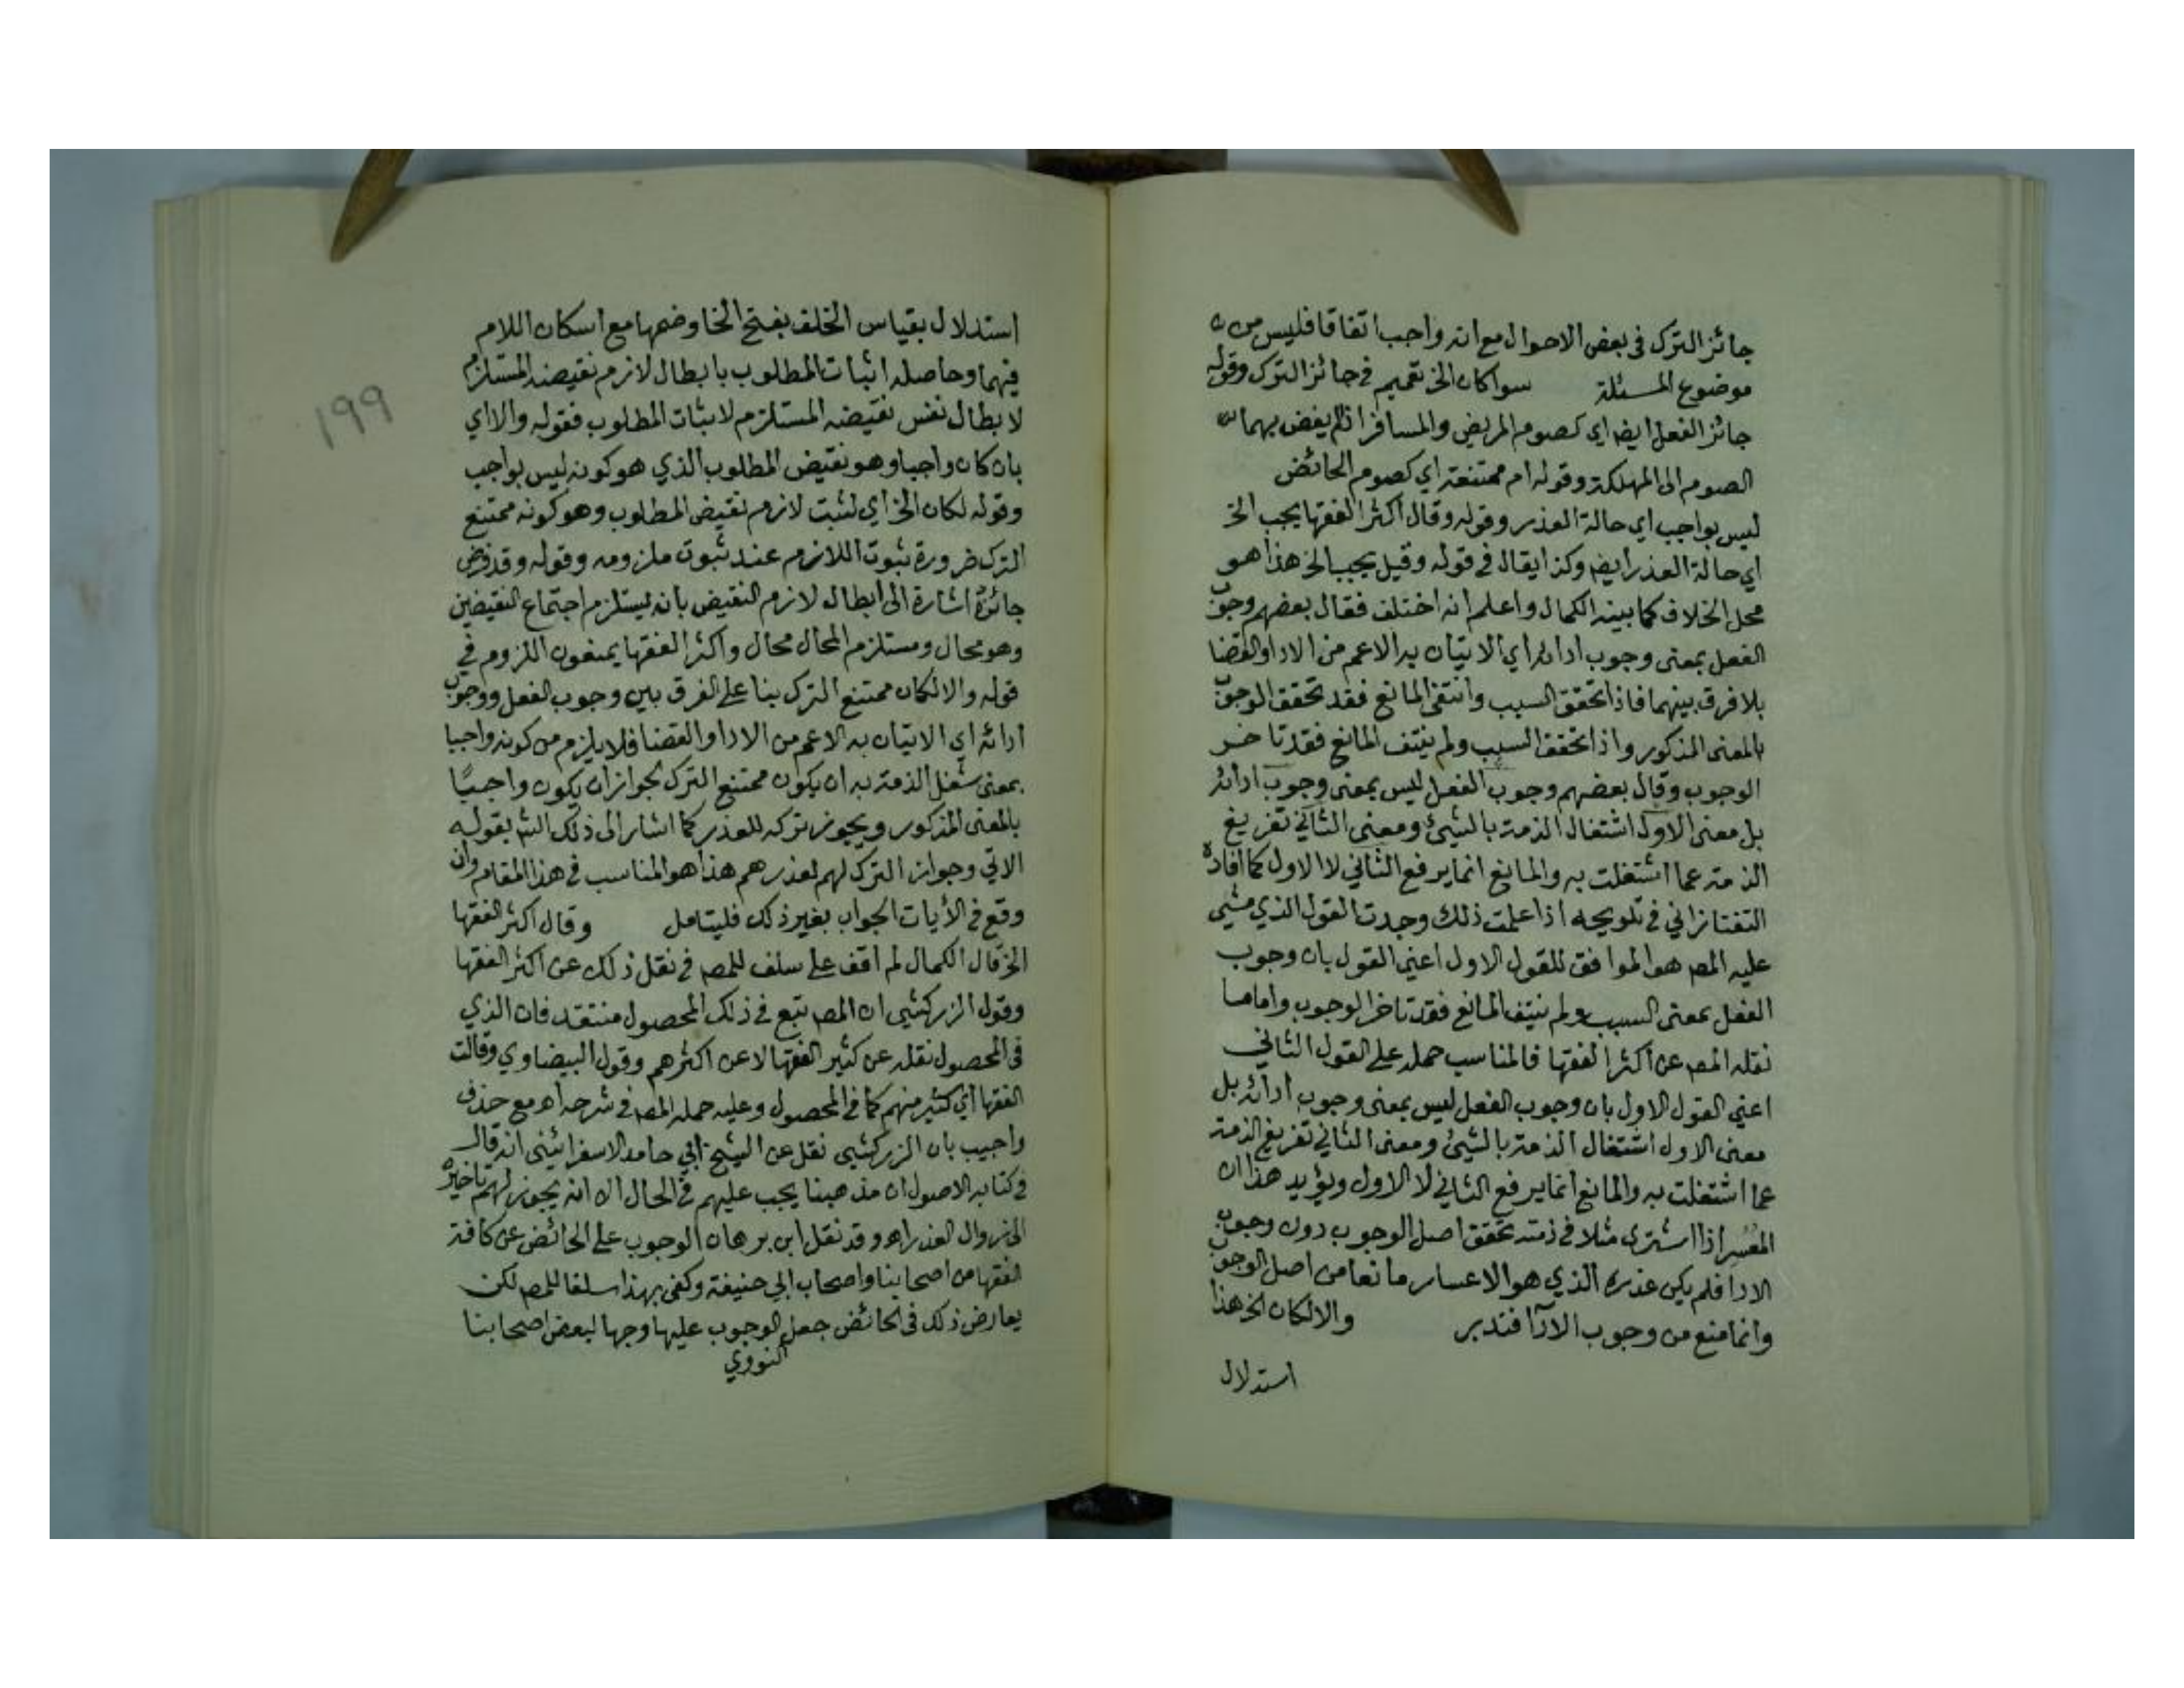 جائز الترك في بعض الاحوال مع انه واجب اتفاقا فليس من
موضوع المسئلة سوا كان الخ تعميم في جائز الترك وقوله
جائز الفعل ايضا اي كصوم المريض والمسافر اذا لم يفض بهما
الصوم الى المهلكة وقوله ام ممتنعة اي كصوم الحائض
ليس بواجب اي حالة العذر وقوله وقال اكثر الفقها يجب الخ
اي حالة العذر ايضا وكذا يقال في قوله وقيل يجب الخ هذا هو
محل الخلاف كما بينه الكمال واعلم انه اختلف فقال بعضهم وجوب
الفعل بمعنى وجوب ادائه اي الاتيان به الاعم من الادا والقضا
بلا فرق بينهما فاذا تحقق السبب وانتفى المانع فقد تحقق الوجوب
بالمعنى المذكور واذا تحقق السبب ولم ينتف المانع فقد تاخر
الوجوب وقال بعضهم وجوب الفعل ليس بمعنى وجوب ادائه
بل معنى الاول اشتغال الذمة بالشيئ ومعنى الثاني تفريغ
الذمة عما اشتغلت به والمانع انما يرفع الثاني لا الاول كما افاده
التفتازاني في تلويحه اذا علمت ذلك وجدت القول الذي مشى
عليه المص هو الموافق للقول الاول اعني القول بان وجوب
الفعل بمعنى السبب ولم ينتف المانع فقد تاخر الوجوب واما ما
نقله المص عن اكثر الفقها فالمناسب حمله على القول الثاني
اعني القول الاول بان وجوب الفعل ليس بمعنى وجوب ادائه بل
معنى الاول اشتغال الذمة بالشيئ ومعنى الثاني تفريغ الذمة
عما اشتغلت به والمانع انما يرفع الثاني لا الاول ويؤيد هذا ان
المعسر اذا اشترى مثلا في ذمته تحقق اصل الوجوب دون وجوب
الادا فلم يكن عذره الذي هو الاعسار مانعا من اصل الوجوب
وانما منع من وجوب الادا فتدبر والا لكان الخ هذا
استدلال
استدلال بقياس الخلف بفتح الخا وضمها مع اسكان اللام
فيهما وحاصله اثبات المطلوب بابطال لازم نقيضه المستلزم
لابطال نفس نقيضه المستلزم لاثبات المطلوب فقوله والا اي
بان كان واجبا وهو نقيض المطلوب الذي هو كونه ليس بواجب
وقوله لكان الخ اي لثبت لازم نقيض المطلوب وهو كونه ممتنع
الترك ضرورة ثبوت اللازم عند ثبوت ملزومه وقوله وقد فرض
جائزة اشارة الى ابطال لازم النقيض بانه يستلزم اجتماع النقيضين
وهو محال ومستلزم المحال محال واكثر الفقها يمنعون اللزوم في
قوله والا لكان ممتنع الترك بنا على الفرق بين وجوب الفعل ووجوب
ادائه اي الاتيان به الاعم من الادا والقضا فلا يلزم من كونه واجبا
بمعنى شغل الذمة به ان يكون ممتنع الترك لجواز ان يكون واجبًا
بالمعنى المذكور ويجوز تركه للعذر كما اشار الى ذلك الش بقوله
الاتي وجواز الترك لهم لعذرهم هذا هو المناسب في هذا المقام وان
وقع في الأيات الجواب بغير ذلك فليتامل وقال اكثر الفقها
الخ قال الكمال لم اقف على سلف للمص في نقل ذلك عن اكثر الفقها
وقول الزركشي ان المص تبع في ذلك المحصول منتقد فان الذي
في المحصول نقله عن كثير الفقها لا عن اكثرهم وقول البيضاوي وقالت
الفقها اي كثير منهم كما في المحصول وعليه حمله المص في شرحه اه مع حذف
واجيب بان الزركشي نقل عن الشيخ ابي حامد الاسفرائيني انه قال
في كتابه الاصول ان مذهبنا يجب عليهم في الحال الا انه يجوز لهم تاخيره
الى زوال العذر اه وقد نقل ابن برهان الوجوب على الحائض عن كافة
الفقها من اصحابنا واصحاب ابي حنيفة وكفى بهذا سلفا للمص لكن
يعارض ذلك في الحائض جعل الوجوب عليها وجها لبعض اصحابنا
النووي
١٩٩